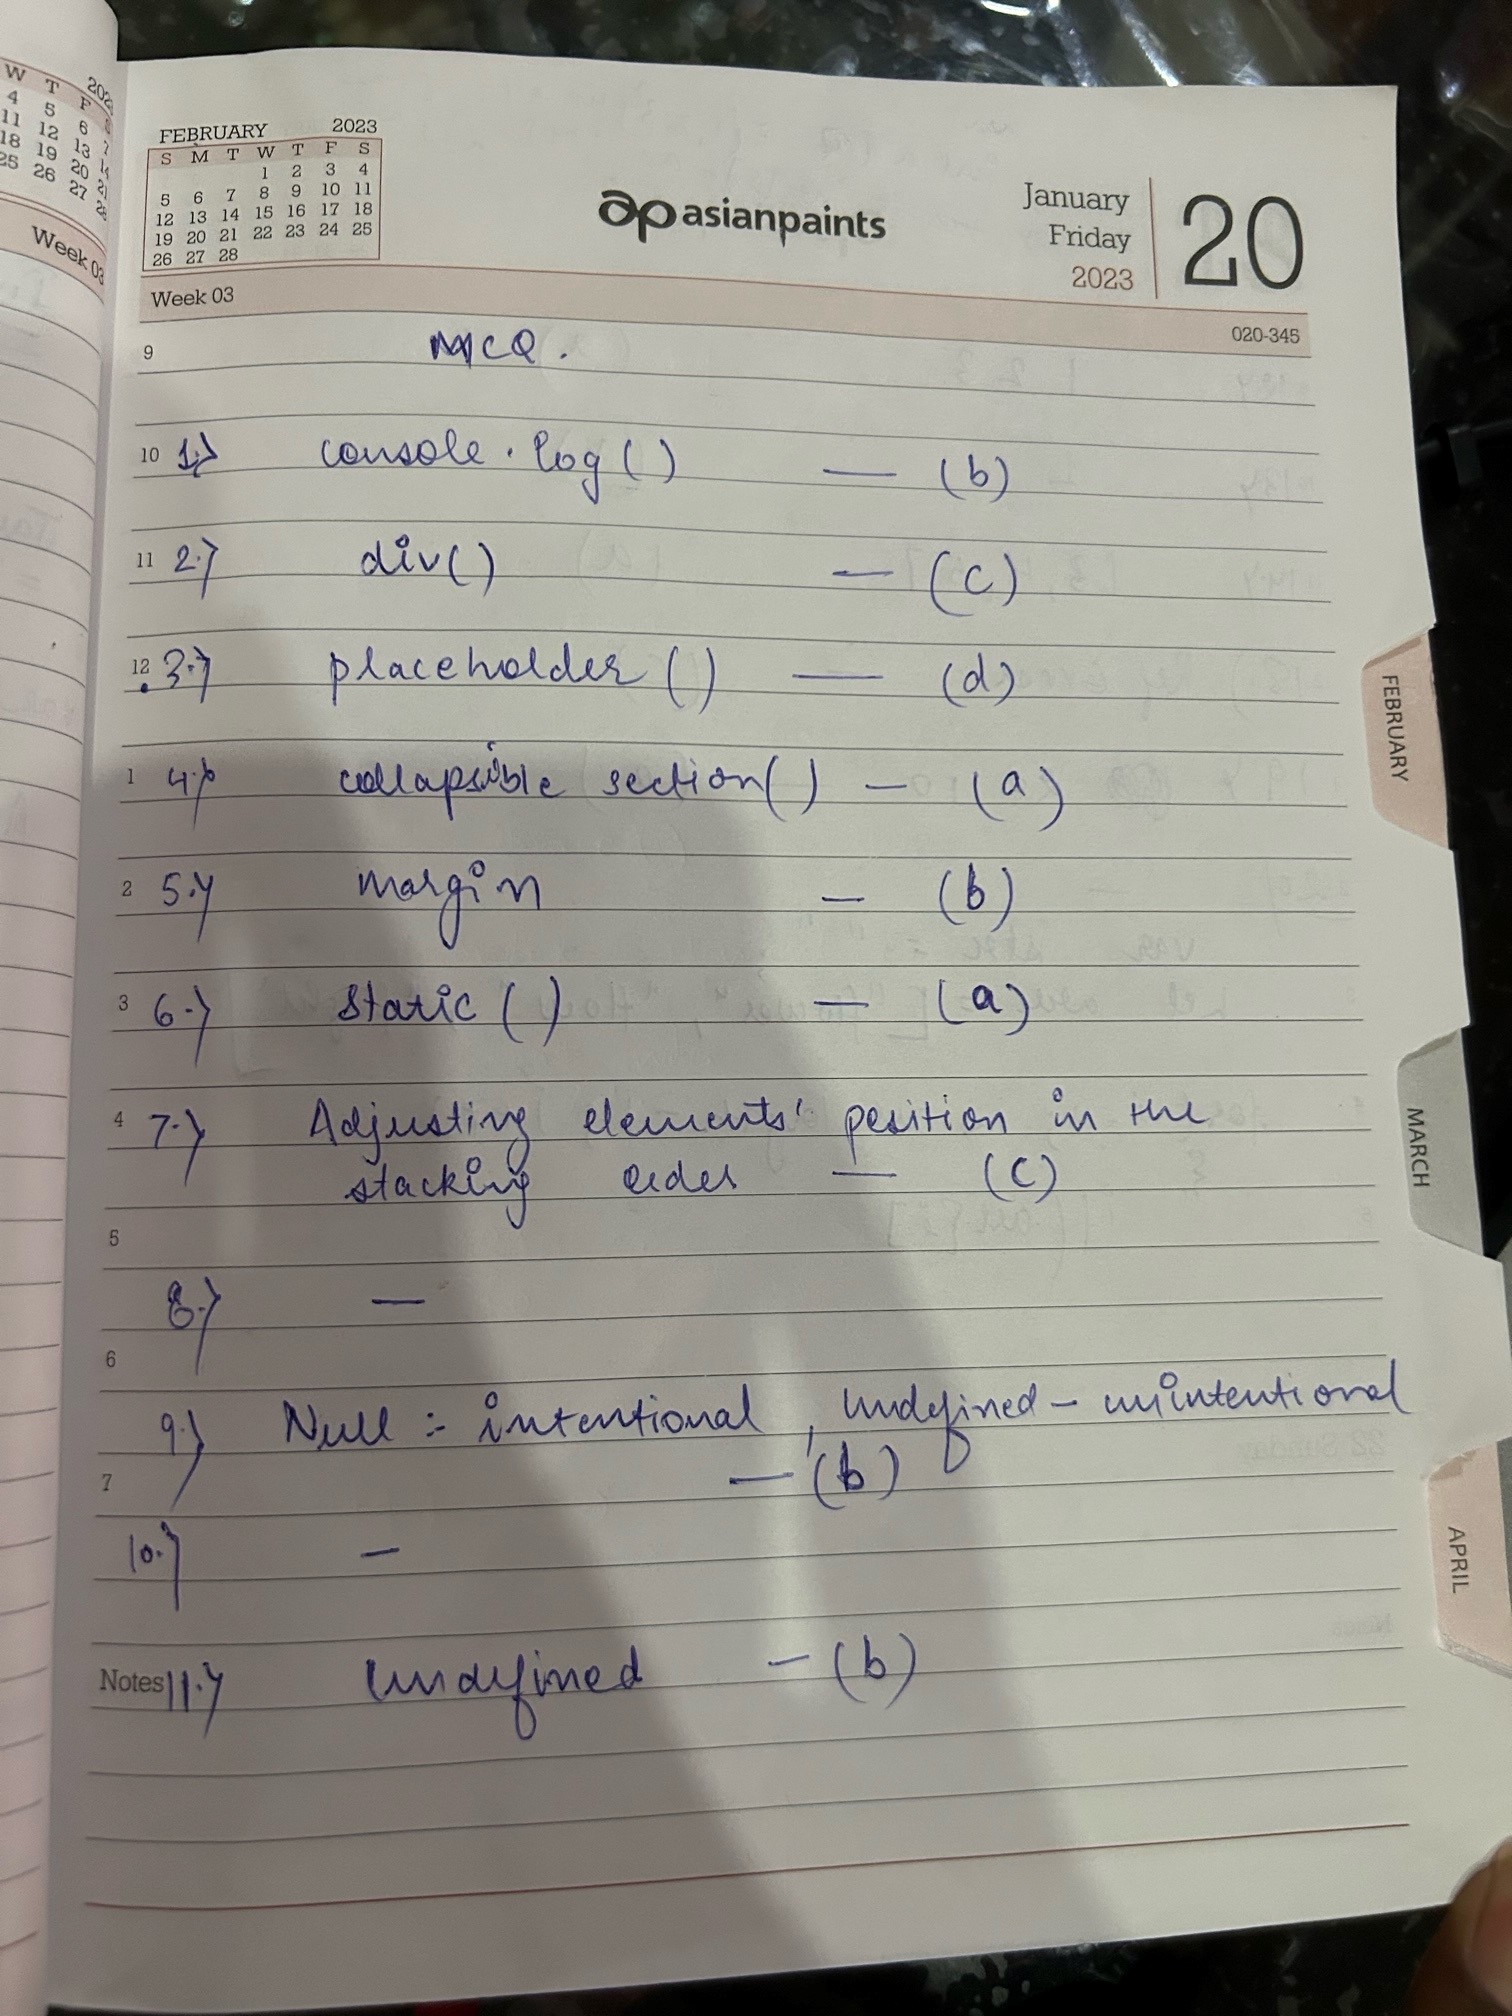 W T F
202
4 5 6
11 12 13
18 19 20
25 26 27
Week 03
FEBRUARY 2023
S M T W T F S
1 2 3 4
5 6 7 8 9 10 11
12 13 14 15 16 17 18
19 20 21 22 23 24 25
26 27 28
asianpaints
January
Friday
2023
20
Week 03
020-345
9 MCQ.
10 1.) console.log() — (b)
11 2.) div() — (c)
12 3.) placeholder() — (d)
1 4.) collapsible section() — (a)
2 5.) margin — (b)
3 6.) static() — (a)
4 7.) Adjusting elements' position in the
stacking order — (c)
5
8.) —
6
9.) Null :- intentional, Undefined - unintentional
7 — (b)
10.) —
Notes 11.) Undefined — (b)
FEBRUARY
MARCH
APRIL